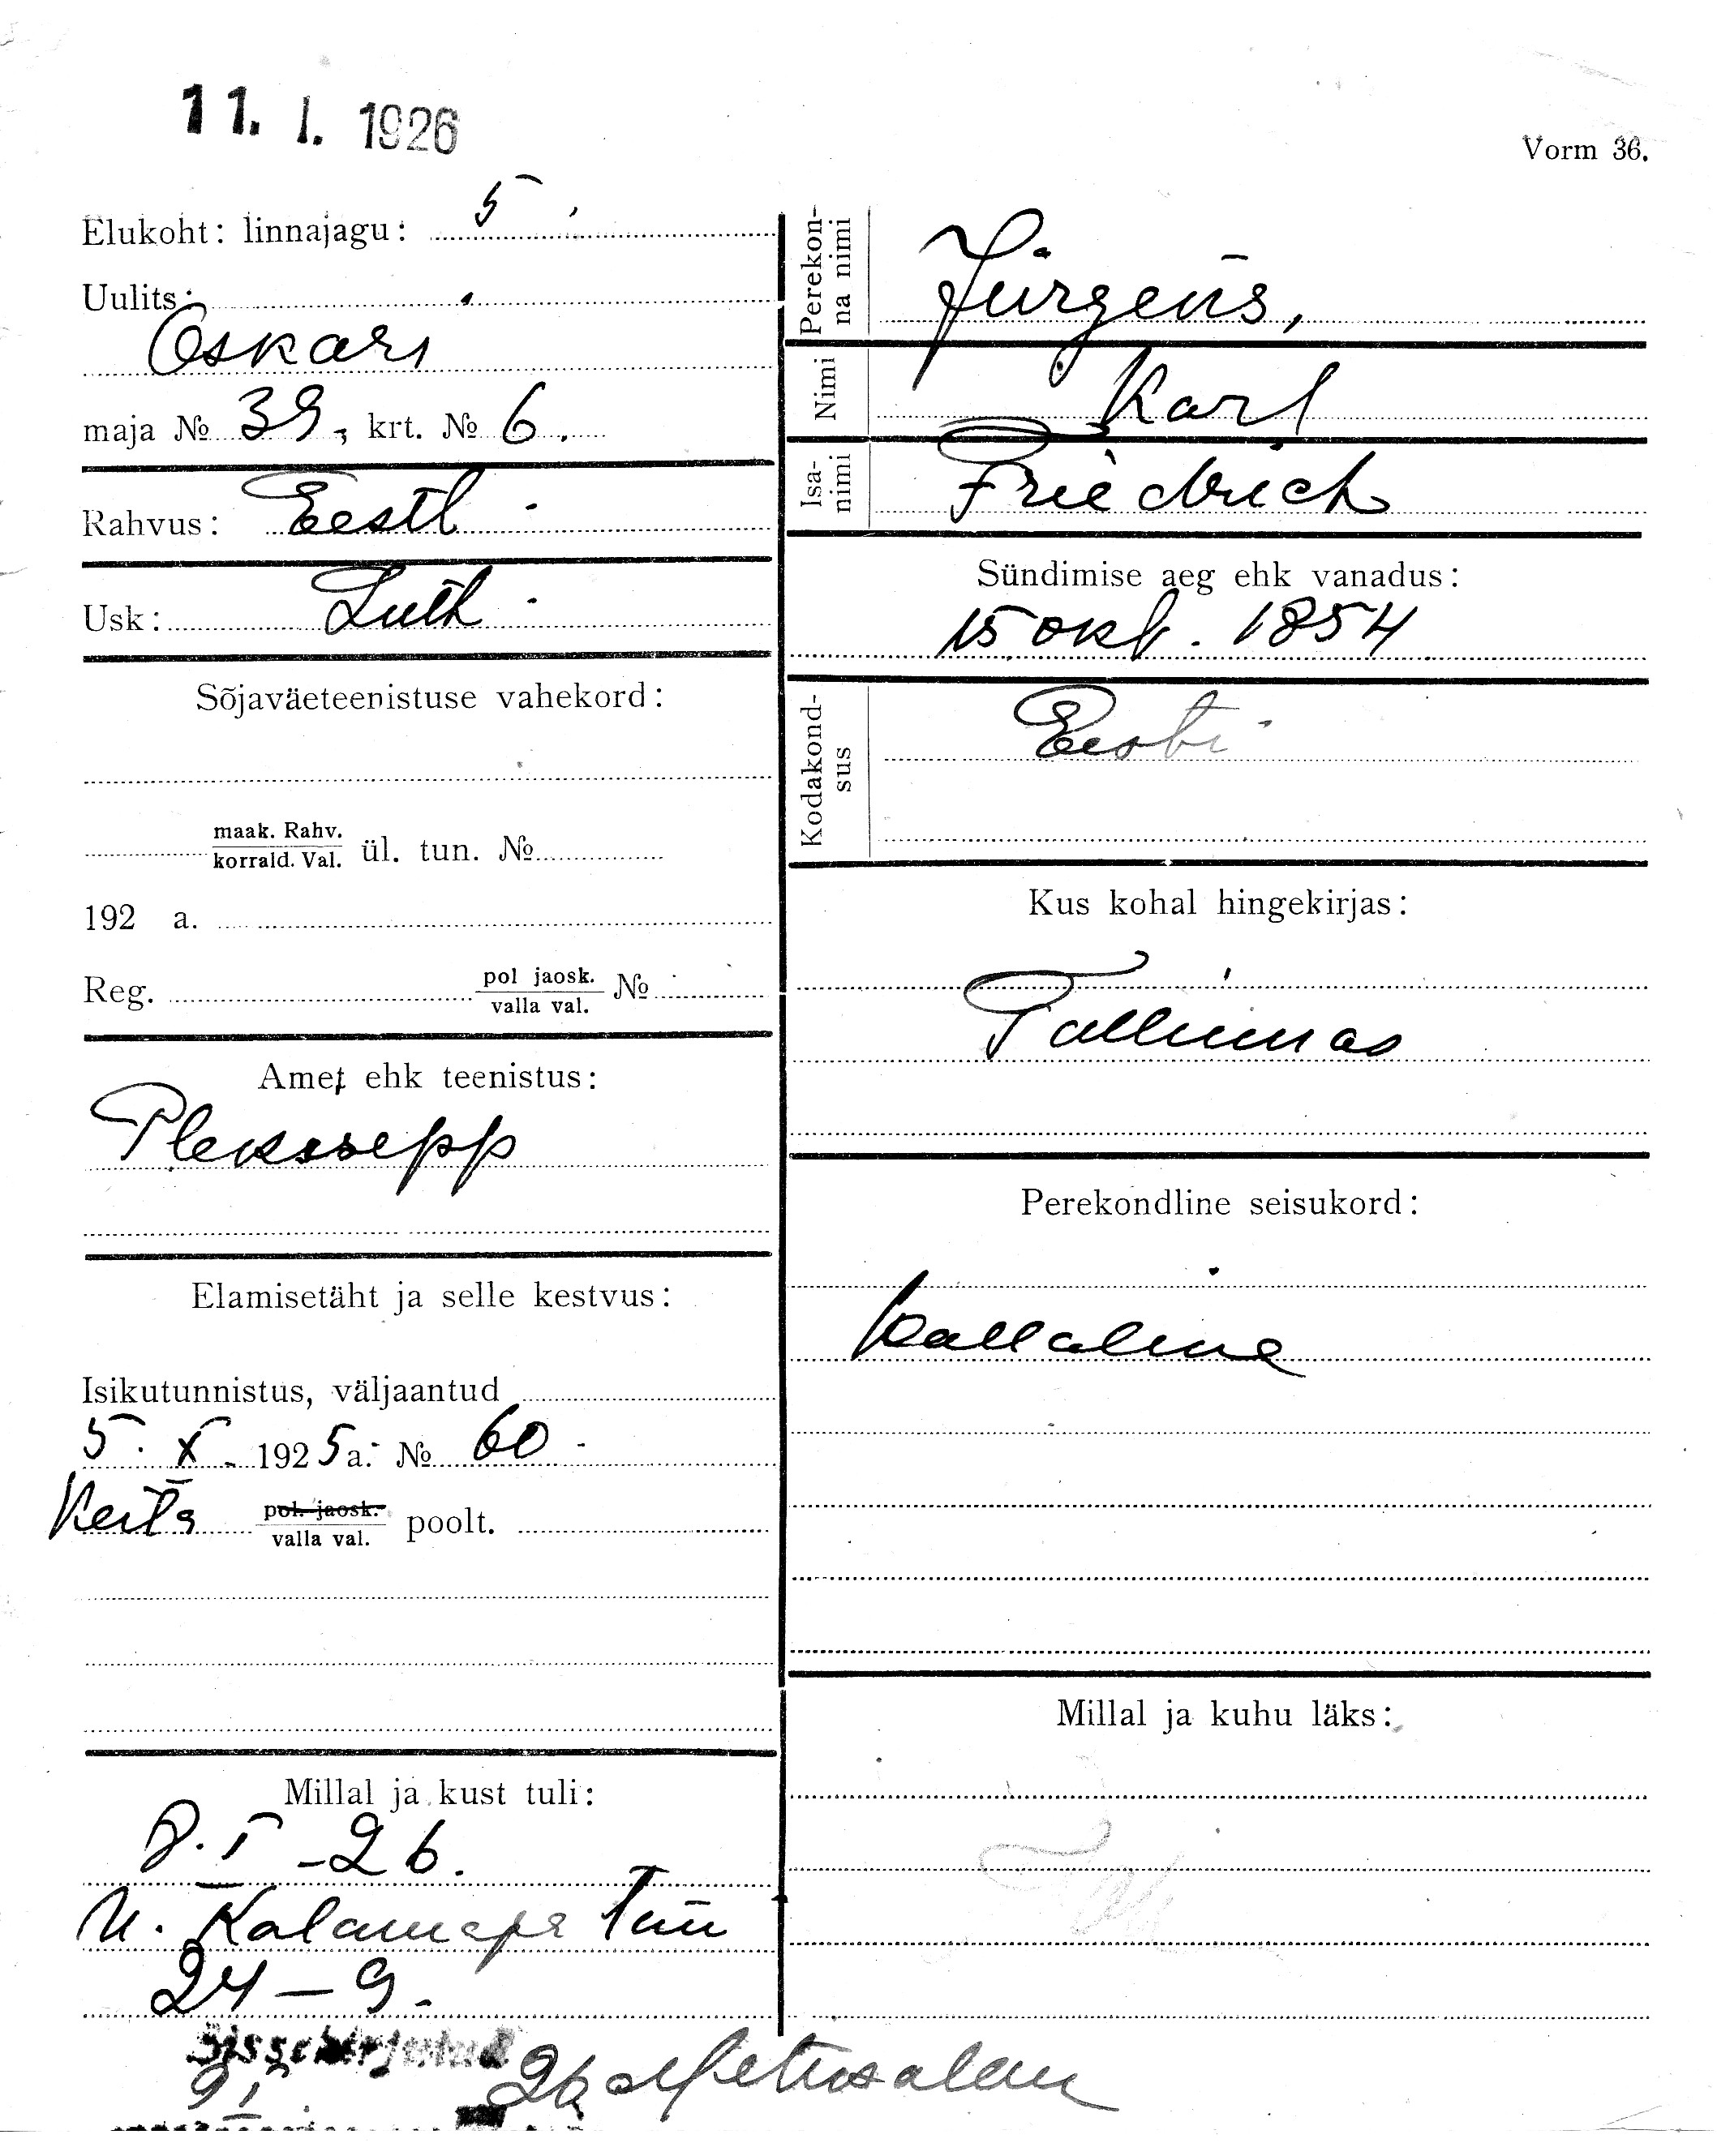 11. I. 1926
Vorm 36.
Elukoht: linnajagu: 5
Uulits:
Oskari
maja № 39, krt. № 6.
Rahvus: Eesti
Usk: Luth
Sõjaväeteenistuse vahekord:
maak. Rahv.
korrald. Val. ül. tun. №
192 a.
Reg. pol jaosk.
valla val. №
Amet ehk teenistus:
Plekssepp
Elamisetäht ja selle kestvus:
Isikutunnistus, väljaantud
5. X. 1925 a. № 60
Keila pol. jaosk.
valla val. poolt.
Millal ja kust tuli:
8. I - 26.
U. Kalamaja tän
24 - 9.
Sissekirjutud
9 I 26 Metusalem
Perekonna nimi
Jürgens,
Nimi
Karl
Isanimi
Friedrich
Sündimise aeg ehk vanadus:
15 okt. 1854
Kodakondsus
Eesti
Kus kohal hingekirjas:
Tallinnas
Perekondline seisukord:
Vallaline
Millal ja kuhu läks: